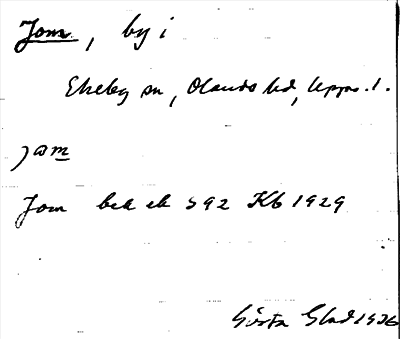 Jom, by i
Ekeby sn, Olands hd, Upps. l.
jɑm
Jom bek ek 592 Kb 1929
Gösta Glad 1926